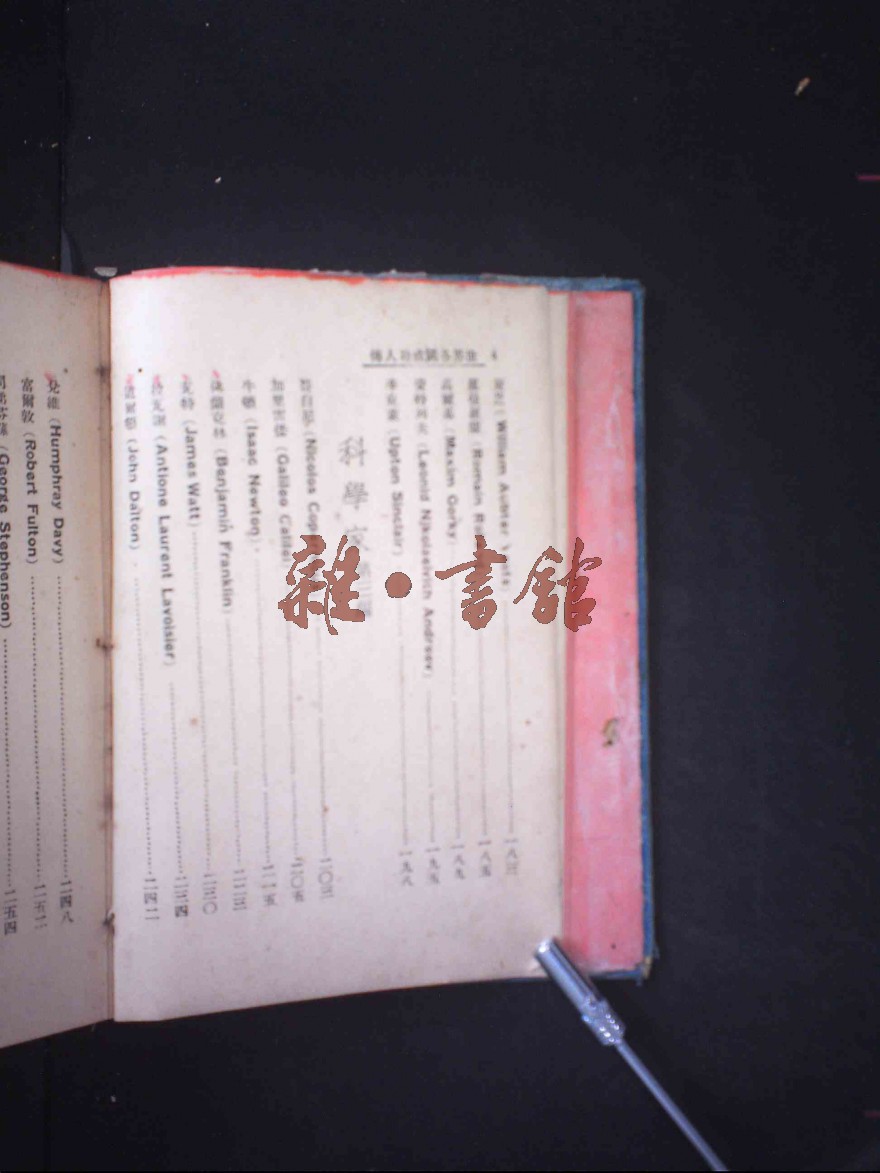 4 世界各國成功人傳
夏芝 (William Autler Yeats ……一八三
羅曼羅蘭 (Romain ……一八五
高爾基 (Maxim Gorky ……一八九
安特列夫 (Leonid Njkolaelvich Andreev) ……一九五
辛克萊 (Upton Sinclair) ……一九八
科學
(Nicolos Cop ……二〇三
加里雷倭 (Galileo Galilei ……二〇五
牛頓 (Isaac Newton) ……二一五
佛蘭克林 (Benjamin Franklin) ……二二三
瓦特 (James Watt) ……二三〇
拉瓦謝 (Antione Laurent Lavoisier) ……二三四
道爾頓 (John Dalton) ……二四二
兌維 (Humphray Davy) ……二四八
富爾敦 (Robert Fulton) ……二五二
(George Stephenson) ……二五四
雜·書館